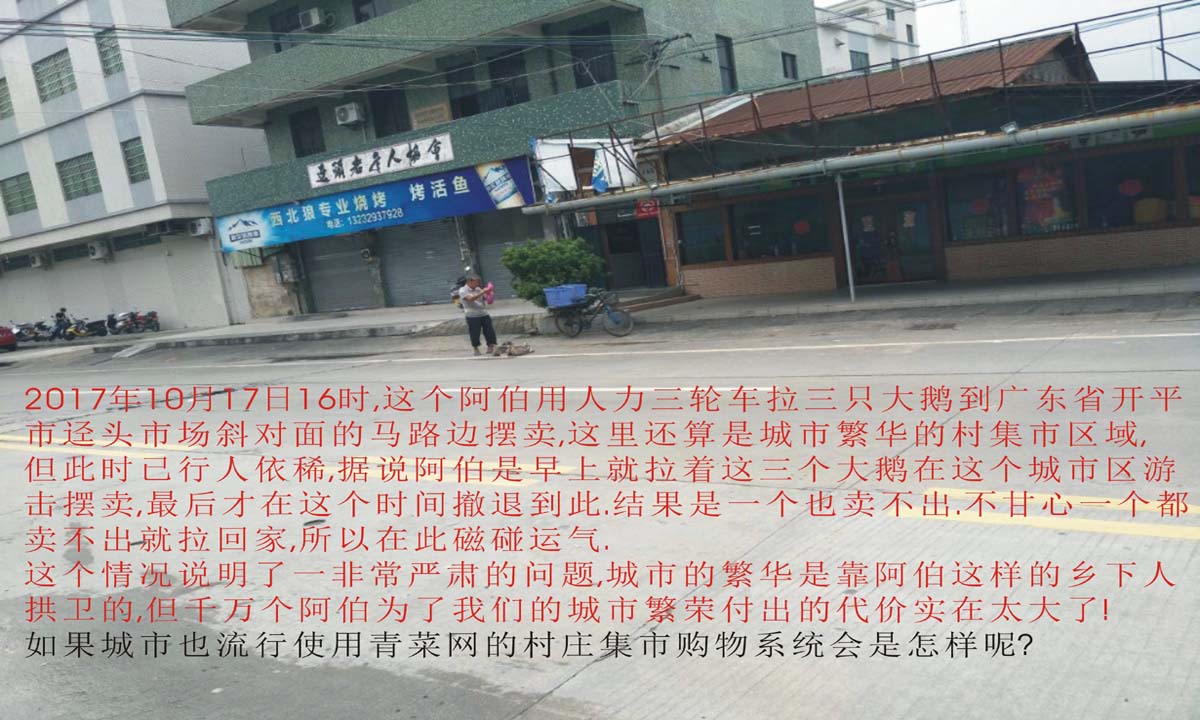 迳頭老年人協會
西北狼专业烧烤 烤活鱼
电话: 13232937928
2017年10月17日16时,这个阿伯用人力三轮车拉三只大鹅到广东省开平
市迳头市场斜对面的马路边摆卖,这里还算是城市繁华的村集市区域,
但此时已行人依稀,据说阿伯是早上就拉着这三个大鹅在这个城市区游
击摆卖,最后才在这个时间撤退到此.结果是一个也卖不出.不甘心一个都
卖不出就拉回家,所以在此磁碰运气.
这个情况说明了一非常严肃的问题,城市的繁华是靠阿伯这样的乡下人
拱卫的,但千万个阿伯为了我们的城市繁荣付出的代价实在太大了!
如果城市也流行使用青菜网的村庄集市购物系统会是怎样呢?